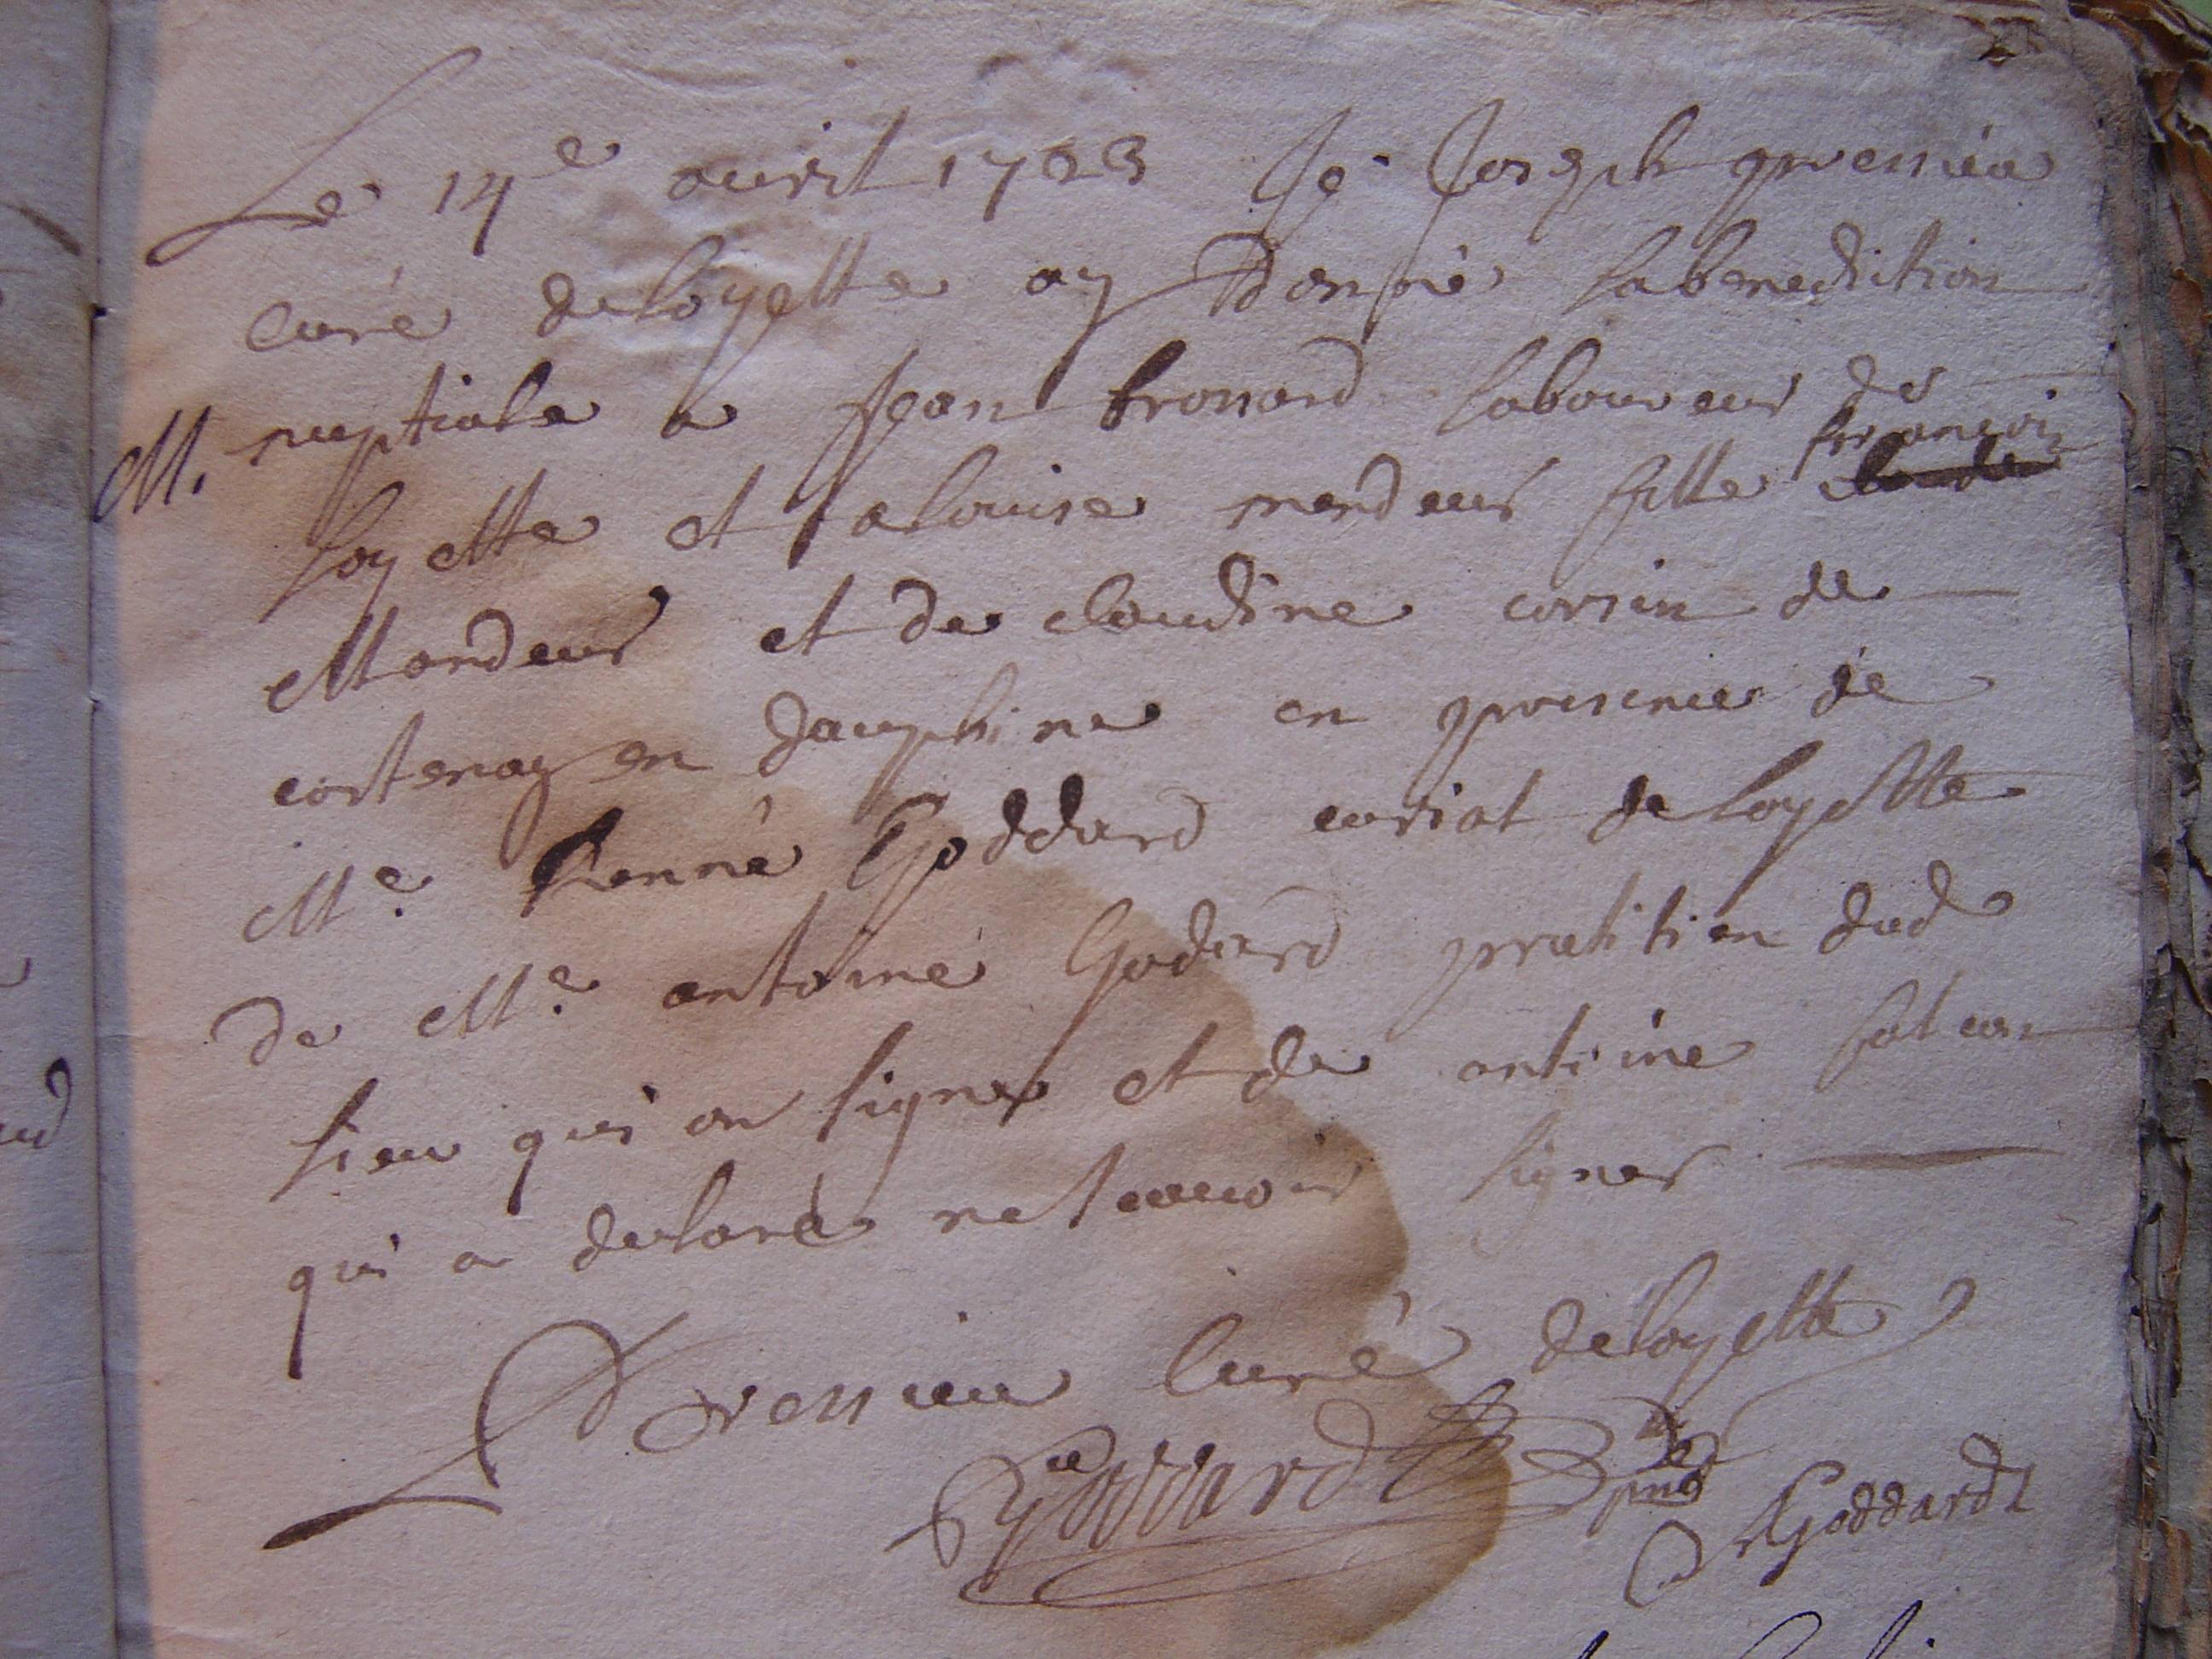 Le 14e avril 1723 Je Joseph pressieu
curé de loyette ay Donné la benediction
M. nuptiale a Jean brossard laboureur de
loyette et a louise mardeur fille francois
Mardeur et de claudine corsin de
cortenay en dauphine en presence de
Me. Renné Goddard curial de loyette
de Me. antoine Godard pratitien dud
lieu qui on signé et de antoine
qui a declaré ne scavoir signer
Pressieu Curé de loyette
Goddard pnt
AGoddard